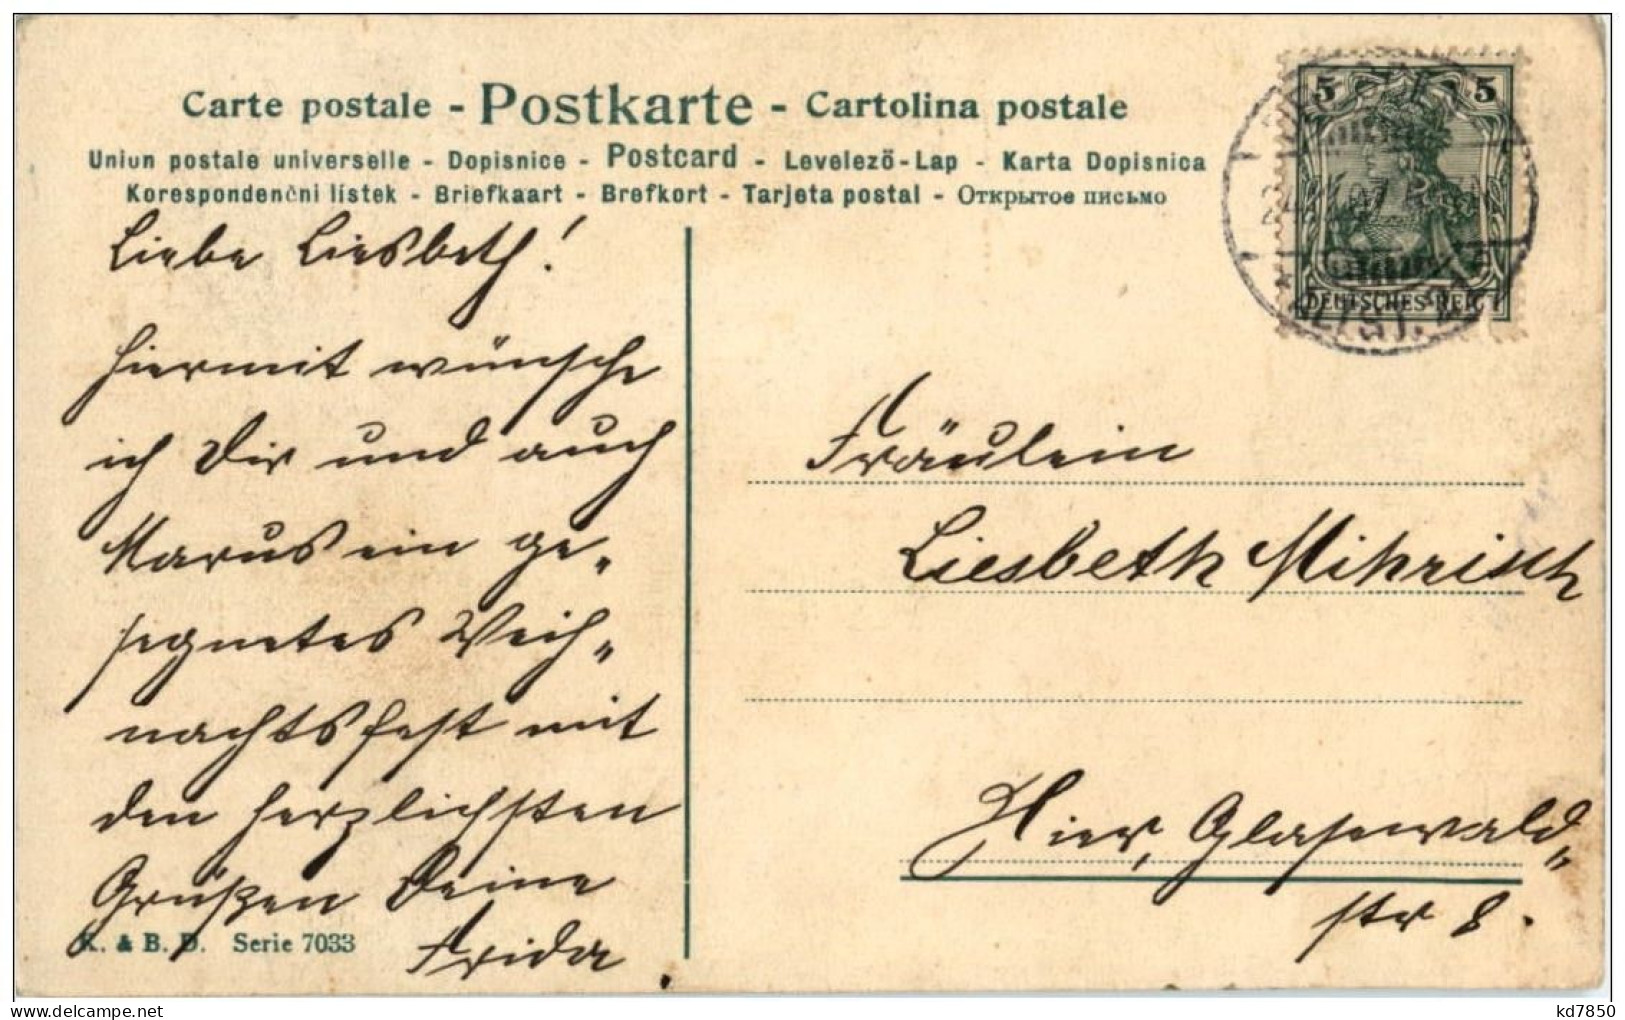 Carte postale - Postkarte - Cartolina postale
Union postale universelle - Dopisnice - Postcard - Levelezö-Lap - Karta Dopisnica
Korespondenčni lístek - Briefkaart - Brefkort - Tarjeta postal - Открытое письмо
5 5
DEUTSCHES REICH
Liebe Liesbeth!
Hiermit wünsche
ich Dir und auch
Marus ein ge-
segnetes Weih-
nachtsfest mit
den herzlichsten
Grüßen Deine
Frida.
Fräulein
Liesbeth Mihrisch
Hier, Glasewald-
str 8.
K. & B. D. Serie 7033
delcampe.net
kd7850